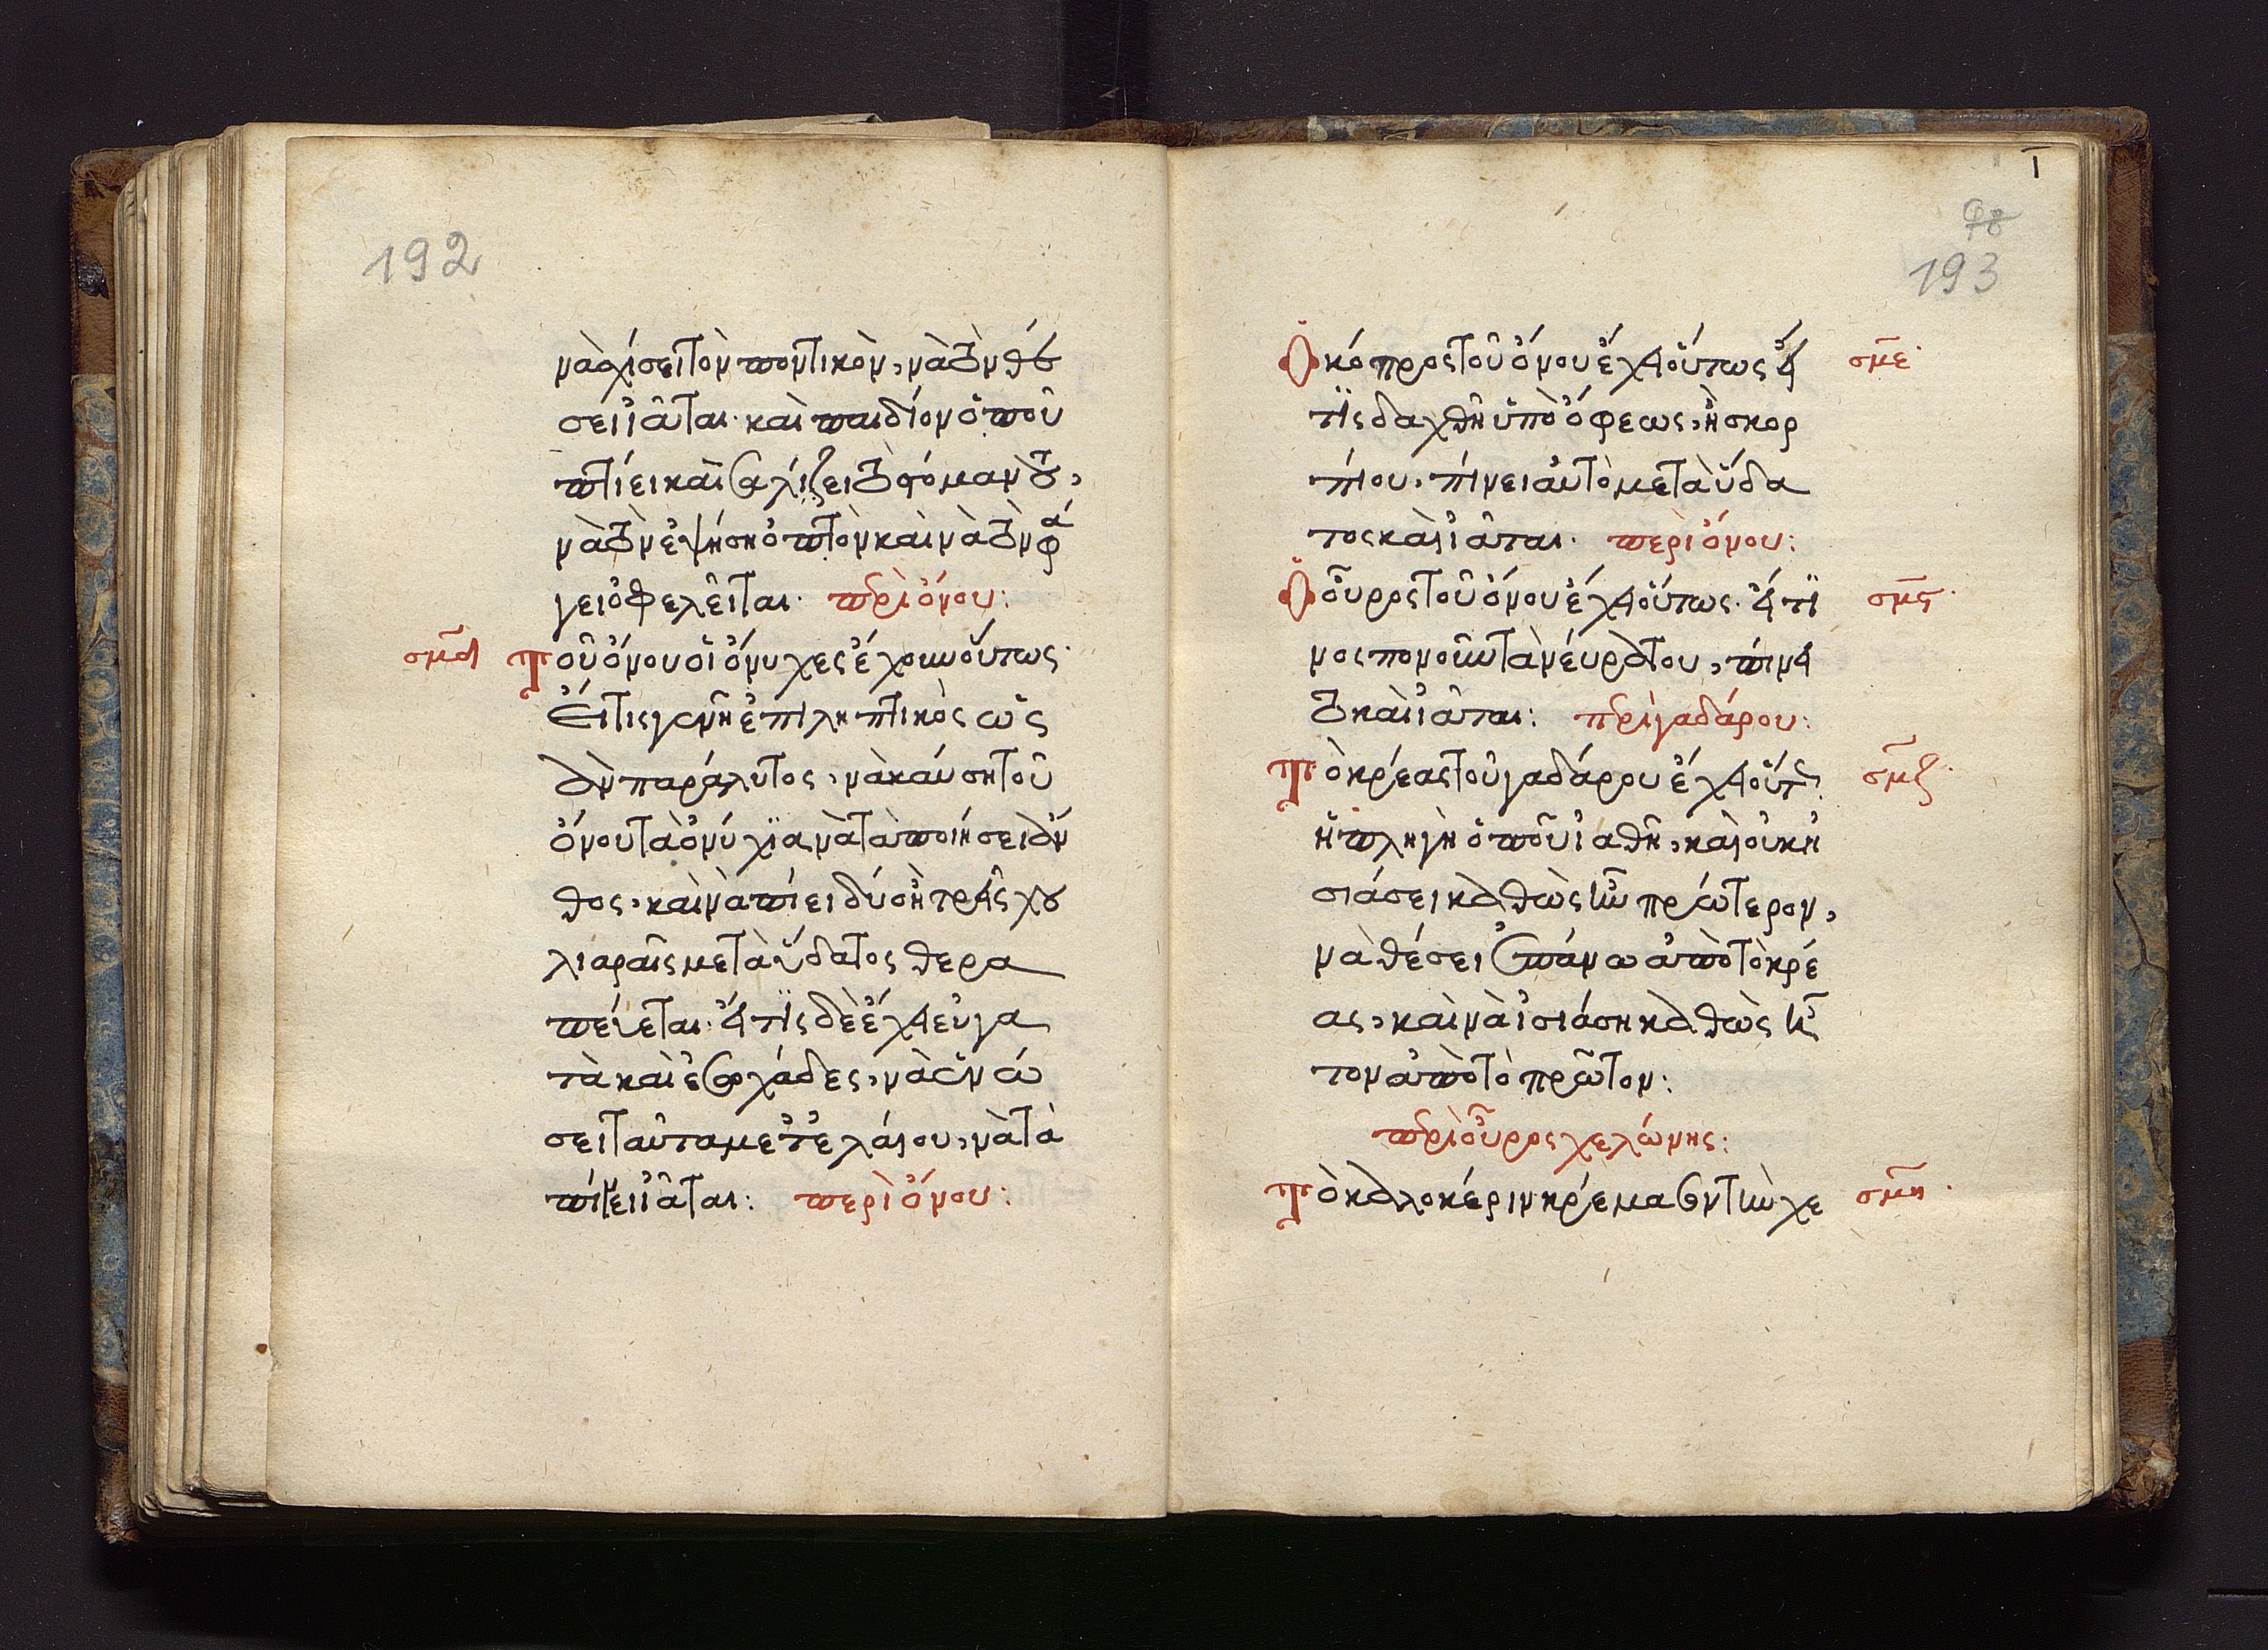 192
νὰ σχίσει τὸν ποντικὸν, νὰ τὸν θέ
σει ἰᾶται. καὶ παιδίον ὁποῦ
πτίει καὶ σαλίζει τὸ στόμαν του,
νὰ τὸν ἑψήση ὀπτὸν καὶ νὰ τὸν φά
γει ὀφελεῖται. περὶ ὄνου:
σμδ Τοῦ ὄνου οἱ ὄνυχες ἔχουν οὕτως.
Εἴτις γοῦν ἢ ἐπιληπτικὸς ὡς
ἂν παράλυτος, νὰ καύση τοῦ
ὄνου τὰ ὀνύχια νὰ τὰ ποιήσει ἄν
θος. καὶ νὰ πίει δύο ἢ τρεῖς χου
λιαραῖς μετὰ ὕδατος θερα
πεύεται. εἴ τις δὲ ἔχει ευγα
τὰ καὶ ἐσφχάδες, νὰ ἑνώ
σει ταῦτα μετὲ ἐλάιου, νὰ τὰ
πίνει ἰᾶται: περὶ ὄνου:
193
Ὁ κόπρος τοῦ ὄνου ἔχει οὕτως εἴ σμε
τις δαχθῆ ὑπὸ ὄφεως, ἢ σκορ
πίου. πίνει αὐτὸ μετὰ ὕδα
τος καὶ ἰᾶται. περὶ ὄνου:
Ὁ οὖρος τοῦ ὄνου ἔχει οὕτως. εἴ τι σμς
νος πονοῦν τὰ νεύρα του, πίνει
το καὶ ἰᾶται: περὶ γαδάρου:
Τὸ κρέας τοῦ γαδάρου ἔχει οὕτως σμζ
ἡ πληγὴ ὁποῦ ἰαθῆ, καὶ οὐκ ἠ
σιάσει καθὼς ἦν πρώτερον,
νὰ θέσει ἐπάνω ἀπὸ τὸ κρέ
ας, καὶ νὰ ἰσιάση καθὼς ἦ
τον ἀπὸ τὸ πρῶτον:
περὶ οὖρος χελώνης:
Τὸ καλοκέριν κρέμασον τὴν χε σμη